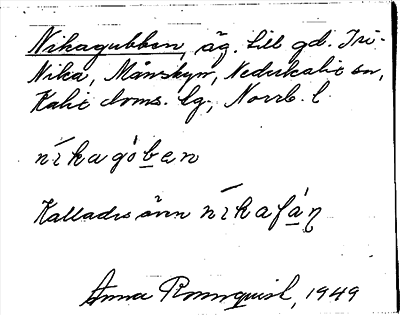 Nikagubben, äg. till gd. Tri-
Nika, Månskyn, Nederkalix sn,
Kalix doms. lg., Norrb. l.
nīkagòben
Kallades även nīkafáɳ
Anna Ronnquist, 1949